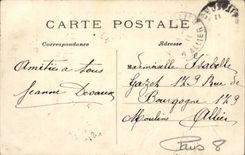 CARTE POSTALE
Correspondance
Adresse
Amitiés à tous
Jeanne Devaux
Mademoiselle Isabelle
Gazet 179 Rue de
Bourgogne 179
Moulins Allier
Paris 8
ALLIER